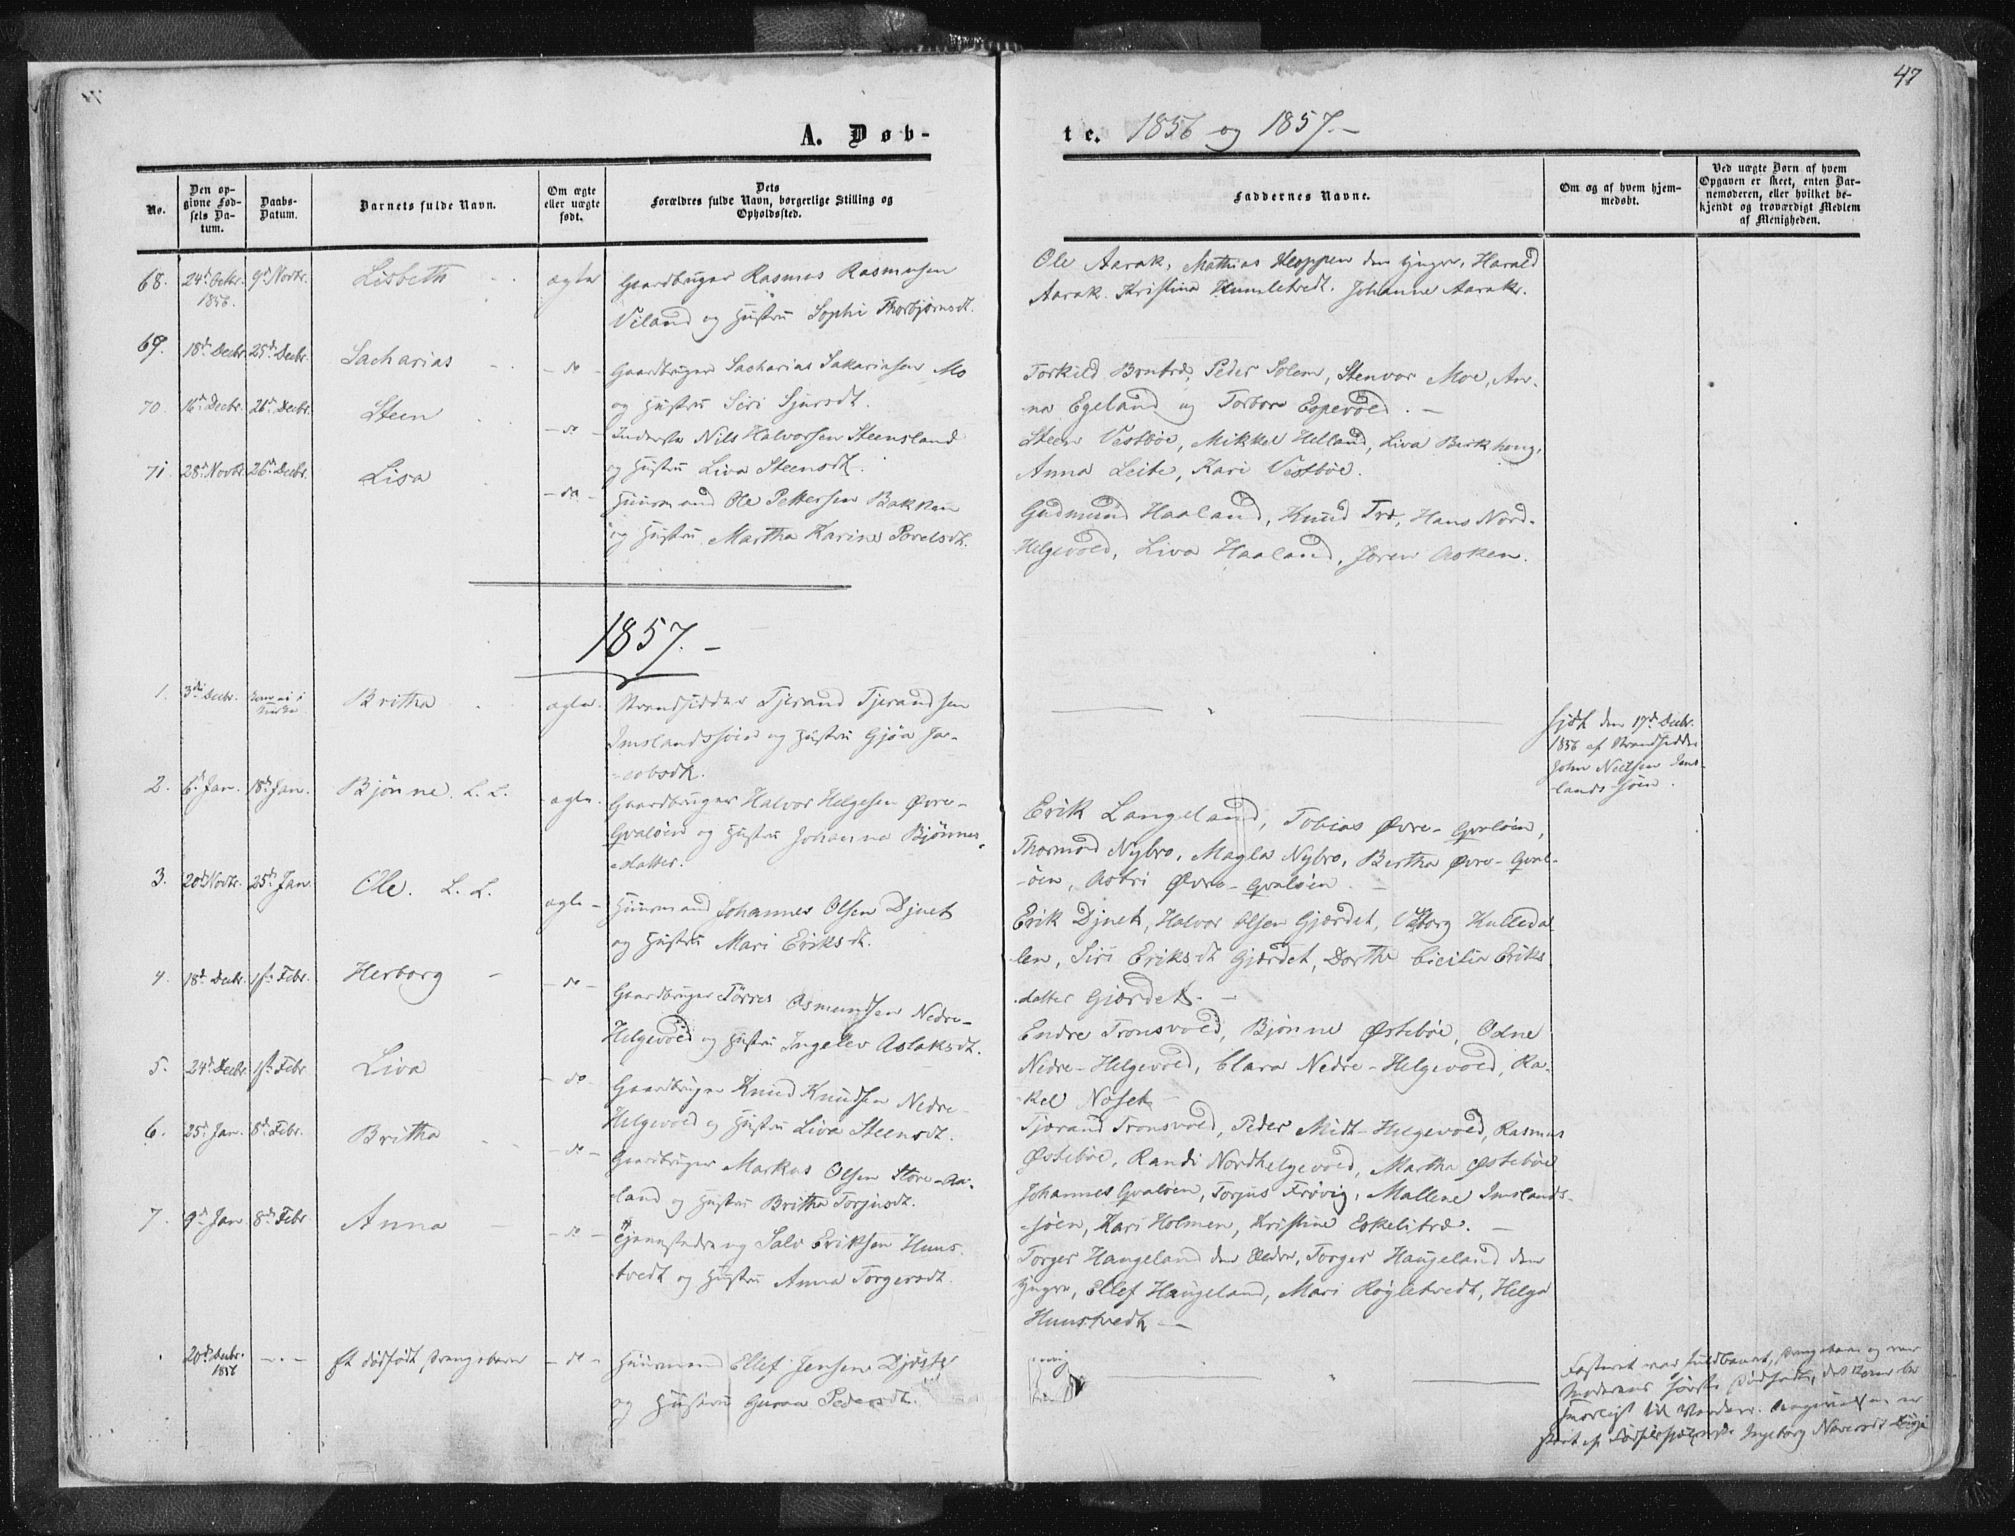 47
A. Døb-
te. 1856 og 1857.-
No.
Den op-
givne Fød-
sels Da-
tum.
Daabs-
Datum.
Barnets fulde Navn.
Om ægte
eller uægte
født.
Dets
Forældres fulde Navn, borgerlige Stilling og
Opholdssted.
Faddernes Navne.
Om og af hvem hjem-
medøbt.
Ved uægte Børn af hvem
Opgaven er skeet, enten Bar-
nemoderen, eller hvilket be-
kjendt og troværdigt Medlem
af Menigheden.
68. 24d Octbr. 1856. 9d Novbr. Lisbeth ægte
Gaardbruger Rasmus Rasmusen
Viland og Hustru Sophi Thorbjørnsdt.
Ole Aarak, Mathias Kloppen den yngre, Harald
Aarak. Kristina Humletvedt. Johanne Aarak.
69. 18d Decbr. 25d Decbr. Sacharias - do -
Gaardbruger Sacharias Sakariasen Mo
og Hustru Siri Sjursdt.
Torkild Brntræ, Peder Solem, Stenvor Moe, An-
na Egeland og Torbor Espevold. -
70. 16d Decbr. 26d Decbr. Steen - do -
Inderste Nils Halvorsen Steensland
og Hustru Liva Steensdt.
Steen Vestbøe, Mikkel Helland, Liva Birkhoug,
Anna Leite, Kari Vestbøe.
71. 28d Novbr. 26d Decbr. Lisa - do -
Huusmand Ole Pettersen Bakken
og Hustru Martha Karine Povelsdt.
Gudmund Haaland, Knud Træ, Hans Nord-
Helgevold, Liva Haaland, Joren Asken.
1857. -
1. 3die Decbr. Britha ægte.
Strandsidder Tjerand Tjerandsen
Imslandssøien og Hustru Gjøa Ja-
-cobsdt.
hjdt den 17d Decbr.
1856 af Strandsidder
John Nielsen Ims-
landssøen.
2. 6d Jan. 18d Jan. Bjønne. L. L. ægte.
Gaardbruger Halvor Helgesen Øvre-
Qvaløen og Hustru Johanna Bjønnes-
-datter.
Erik Langeland, Tobias Øvre-Qvaløen,
Thormod Nybro, Magla Nybro, Bertha Øvre-Qval-
-øen, Astri Øvre-Qvaløen. -
3. 20d Novbr. 25d Jan. Ole. L. L. ægte -
Huusmand Johannes Olsen Djuet
og Hustru Mari Eriksdt.
Erik Djuet, Halvor Olsen Gjærdet, Viborg Hulleda-
len, Siri Eriksdt Gjærdet, Dorthe Cicilie Eriks
datter Gjærdet. -
4. 18d Decbr. 1ste Febr. Herborg - do -
Gaardbruger Tørres Osmundsen Nedre-
Helgevold og Hustru Ingelev Aslaksdt.
Endre Tronsvold, Bjønne Østebøe, Odne
Nedre-Helgevold, Clara Nedre-Helgevold, Ra-
kel Næset -
5. 24d Decbr. 1ste Febr. Liva - do -
Gaardbruger Knud Knudsen Nedre-
Helgevold og Hustru Liva Steensdt.
Tjærand Tronsvold, Peder Midt-Helgevold, Rasmus
Østebøe, Randi Nordhelgevold, Martha Østebøe
6. 25d Jan. 8d Febr. Britha - do -
Gaardbruger Markus Olsen Store-Aa-
land og Hustru Britha Torjusdt.
Johannes Qvaløen, Torjus Frøvig, Mallene Imslands-
-søen, Kari Holmen, Kristine Eskelitræ. -
7. 9d Jan 8d Febr. Anna - do -
Salv Eriksen Huus-
tvedt og Hustru Anna Torgersdt.
Torger Haugeland den Eldre, Torger Haugeland den
yngre, Ellef Haugeland, Mari Røgletvedt, Helga
Huustvedt -
20d Decbr. 1856 Et dødfødt Drengebarn - do -
Huusmand Ellef Jensen
og Hustru Guroe Pedersdt.
Fosteret var fuldbaaret, Drengebarn og var
Moderens første
Ingeborg